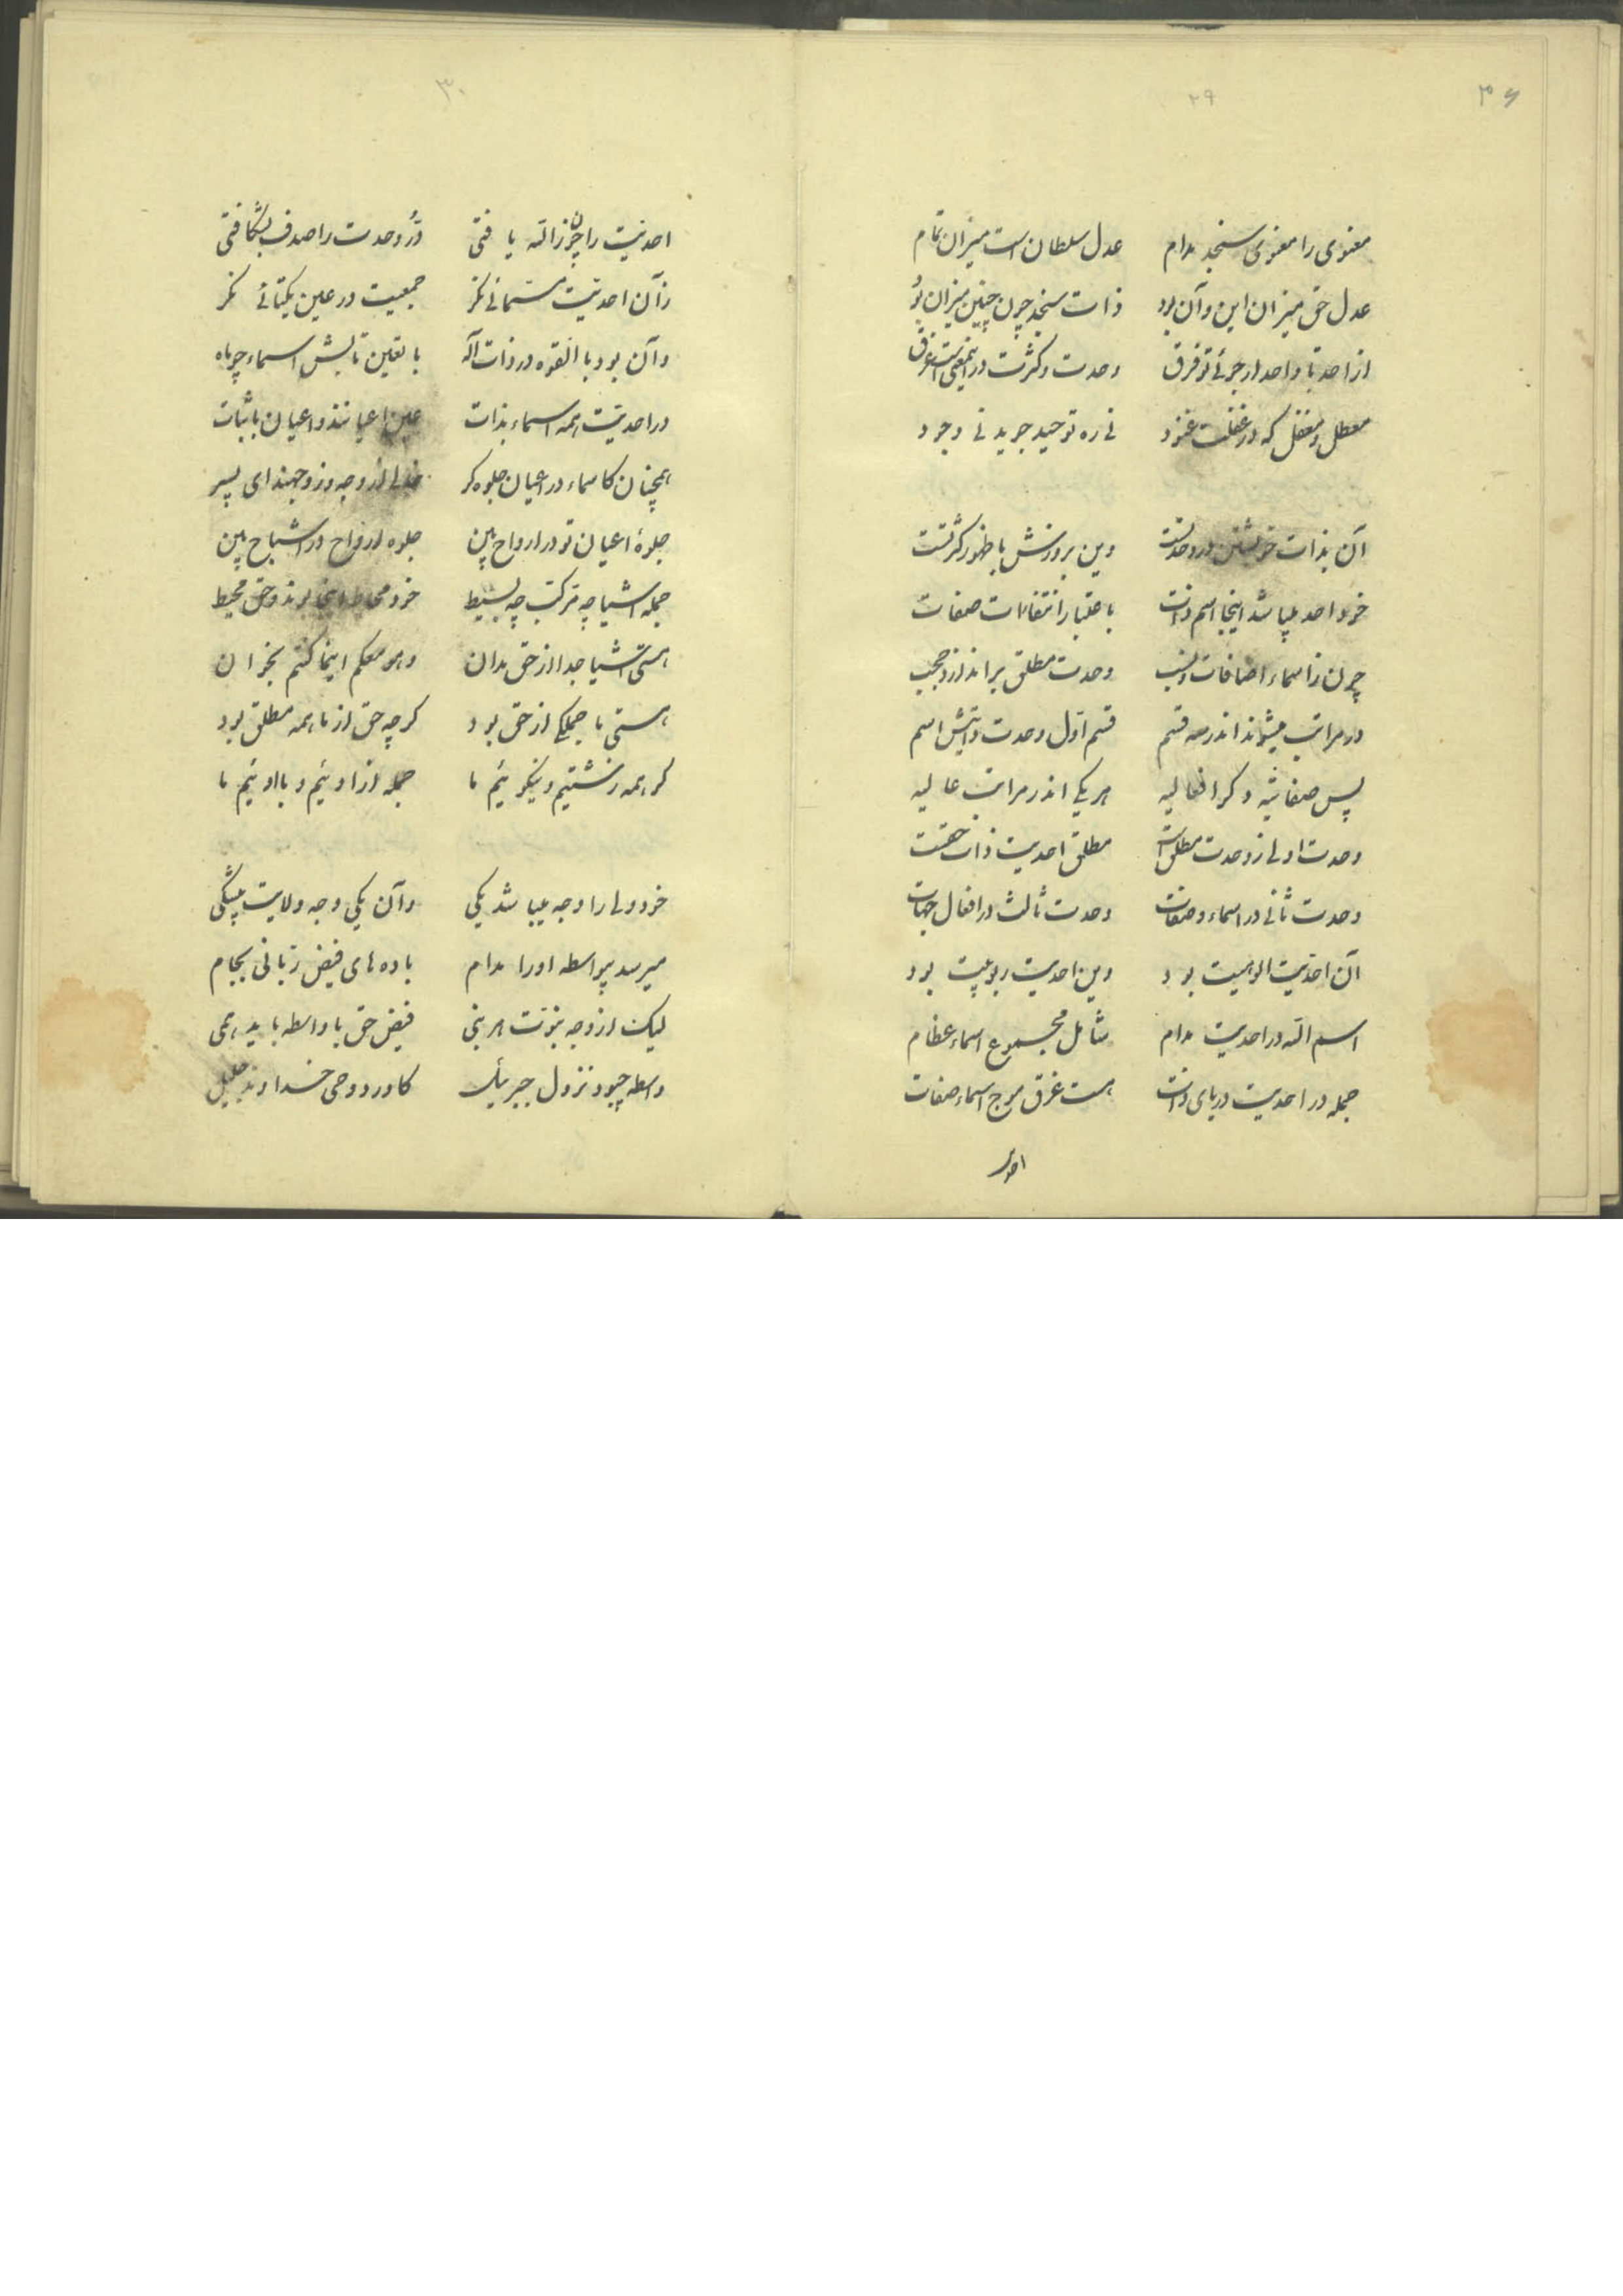 ۳۶
۲۹
معنوی را معنوی سنجد مدام عدل سلطان است میزان تمام
عدل حق میزان این و آن بود ذات سنجد چون چنین میزان بود
از احد تا واحد ار جوئی تو فرق وحدت و کثرت در این معنی است غرق
معطل و مغفل که در غفلت غنود نی ره توحید جوید نی وجود
آن بذات خویشتن در وحدتست وین بروزش با ظهور کثرتست
خود احد میباشد اینجا اسم ذات باعتبار انتفاءات صفات
چون ز اسماء و اضافات و نسب وحدت مطلق براندازد حجب
در مراتب میشوند اندر سه قسم قسم اول وحدت ذاتیش اسم
پس صفاتیه دکر افعالیه هر یکی اندر مراتب عالیه
وحدت اولی ز وحدت مطلق است مطلق احدیت ذات حقست
وحدت ثانی در اسماء و صفات وحدت ثالث در افعال جهات
آن احدیت الوهیت بود وین احدیت ربوبیت بود
اسم الله در احدیت مدام شامل مجموع اسماء عظام
جمله در احدیت دریای ذات هست غرق موج اسماء صفات
احدیت
۳۰
احدیت را چون ز الله یافتی دُرّ وحدت را صدف بشکافتی
زآن احدیت مسمائی نکر جمعیت در عین یکتائی نکر
وآن بود بالقوه در ذات اله با تعین تابش اسماء چو ماه
در احدیت همه اسماء بذات عین اعیانند و اعیان با ثبات
همچنان کاسماء در اعیان جلوه کر وجهند ای پسر
جلوهٔ اعیان تو در ارواح بین جلوه ارواح در اشباح بین
جمله اشیا چه مرکب چه بسیط خود محاط بوند و حق محیط
هستی اشیا جدا از حق مدان وهو معکم اینما کنتم بخوان
هستی ما جملکی از حق بود کرچه حق از ما همه مطلق بود
کر همه زشتیم و نیکوئیم ما جمله از اوئیم و با اوئیم ما
خود ولی را وجه میباشد یکی وآن یکی وجه ولایت بیشکی
میرسد بیواسطه او را مدام باده های فیض ربانی بجام
لیک از وجه نبوت هر نبی فیض حق با واسطه یابد همی
واسطه چبود نزول جبرئیل کاورد وحی خداوند جلیل